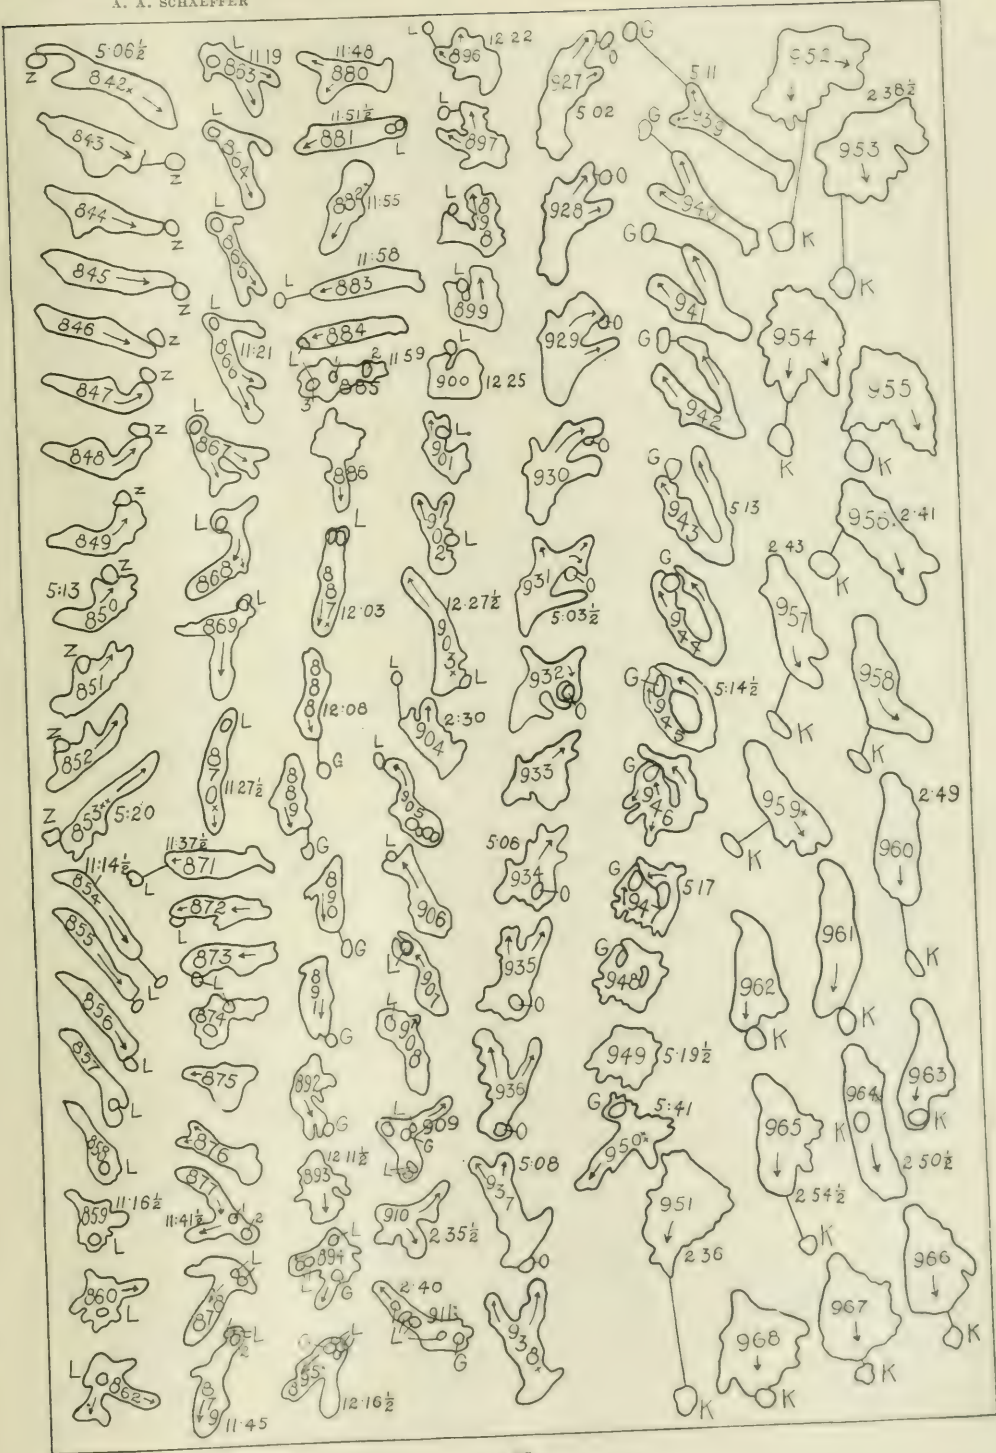 A. A. SCHAEFFER
5:06½
Z
842
843
Z
844
Z
845
Z
846
Z
847
Z
848
Z
849
Z
5:13
850
Z
851
Z
852
Z
853
5:20
Z
11:14½
854
L
855
856
L
857
L
858
L
859
11:16½
L
860
L
862
L
L
11:19
863
L
864
L
865
L
866
11:21
L
867
L
868
869
L
870
L
11:27½
11:37½
871
L
872
L
873
L
874
875
876
877
1
2
11:41½
L
878
L
2
879
11:45
11:48
880
11:51½
881
L
882
11:55
11:58
L
883
884
L
1
2
11:59
885
3
886
L
887
12:03
888
12:08
G
889
G
890
G
891
G
892
G
12 11½
893
L
894
L
G
G
L
895
12·16½
L
896
12 22
L
897
L
898
L
899
L
900
12 25
L
901
902
L
12·27½
903
L
L
2:30
904
L
905
L
906
L
907
L
908
L
909
G
L
910
2 35½
2·40
911
L
G
927
O
5 02
928
O
929
O
930
O
931
O
5:03½
932
O
933
5:06
934
O
935
O
936
O
5:08
937
O
938
G
5 11
939
G
940
G
941
G
942
G
943
5 13
G
944
G
945
5:14½
G
946
G
947
5 17
G
948
949
5:19½
G
5:41
950
951
2 36
K
952
K
2 38½
953
K
954
K
955
K
956
2·41
K
2 43
957
K
958
K
959
K
2·49
960
K
961
K
962
K
963
K
964
K
2 50½
965
2 54½
K
966
K
967
K
968
K